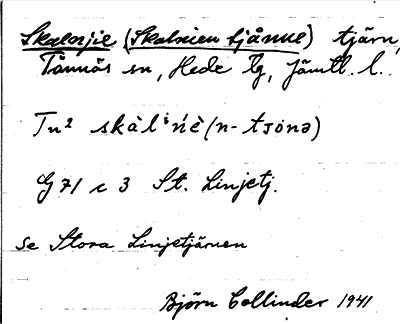 Skalnjie (Skalnien tjånne) tjärn,
Tännäs sn, Hede tg, Jämtl. l.
Tn² skàlⁱńè (n- tsonə)
G 71 c 3 St. Linjetj.
Se Stora Linjetjärnen
Björn Collinder 1941